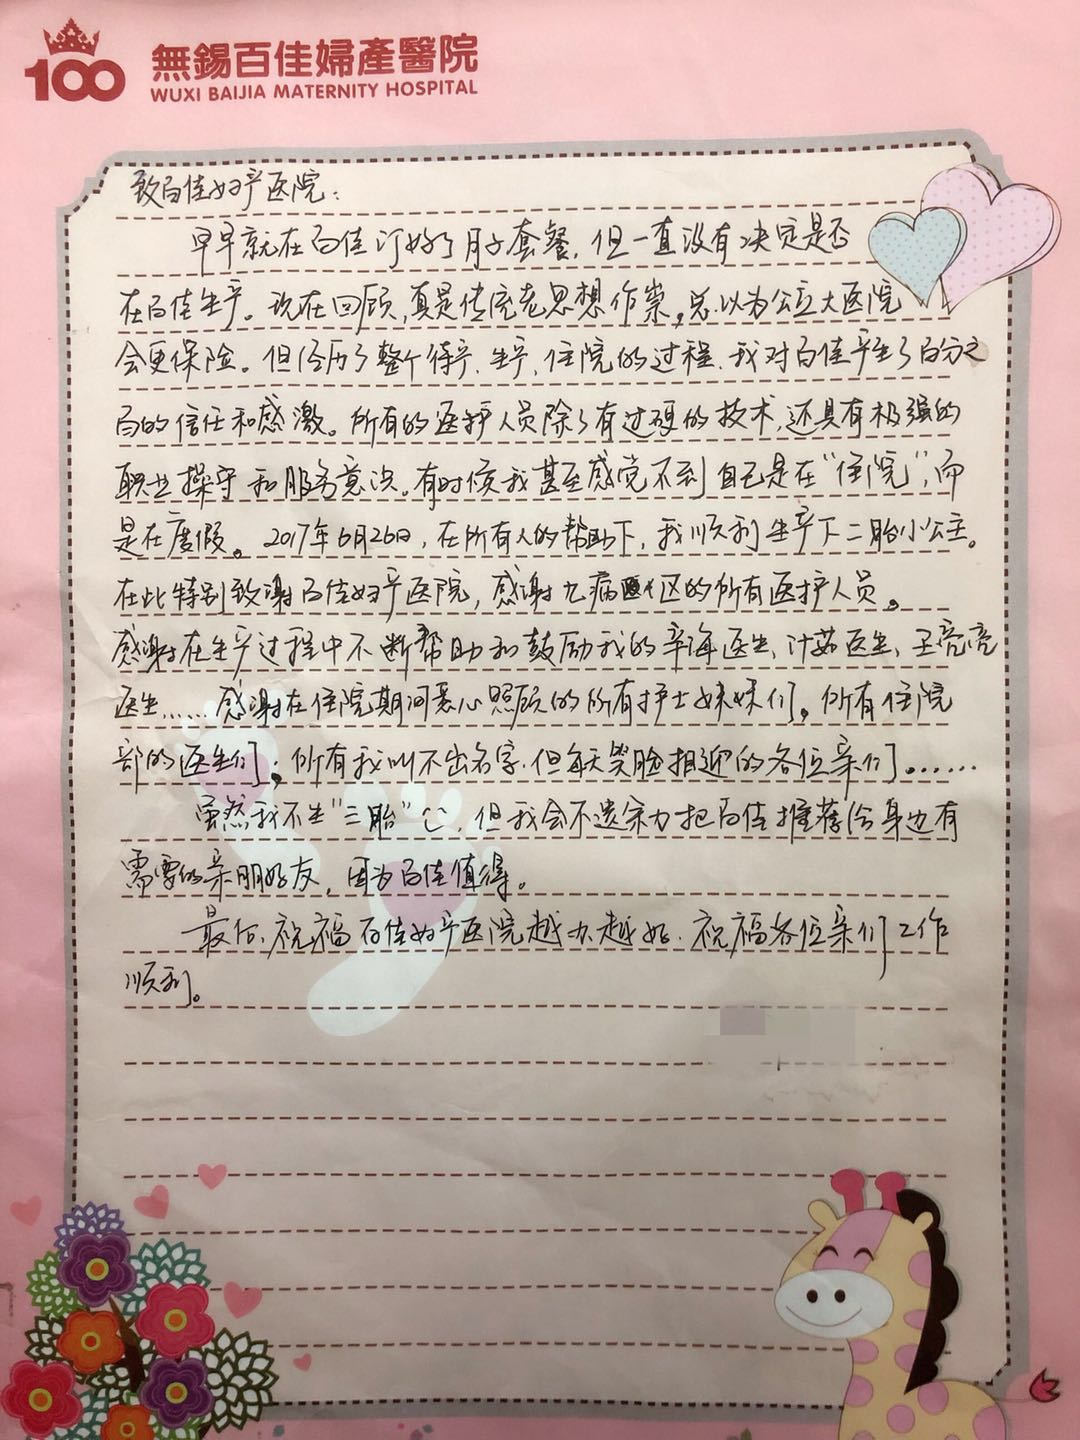 100 無錫百佳婦產醫院
WUXI BAIJIA MATERNITY HOSPITAL
致百佳妇产医院：
早早就在百佳订好了月子套餐，但一直没有决定是否
在百佳生产。现在回顾，真是传统老思想作祟，总以为公立大医院
会更保险。但经历了整个待产、生产、住院的过程，我对百佳产生了百分之
百的信任和感激。所有的医护人员除了有过硬的技术，还具有极强的
职业操守和服务意识。有时候我甚至感觉不到自己是在“住院”，而
是在度假。2017年6月26日，在所有人的帮助下，我顺利生产下二胎小公主。
在此特别致谢百佳妇产医院，感谢九病区的所有医护人员。
感谢在生产过程中不断帮助和鼓励我的辛海医生、计茹医生、王亮亮
医生……感谢在住院期间悉心照顾的所有护士妹妹们，所有住院
部的医生们，所有我叫不出名字，但每天笑脸相迎的各位亲们……
虽然我不生“三胎”，但我会不遗余力把百佳推荐给身边有
需要的亲朋好友，因为百佳值得。
最后，祝福百佳妇产医院越办越好，祝福各位亲们工作
顺利。